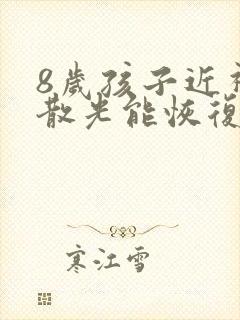 8歲孩子近視
散光能恢復
寒江雪